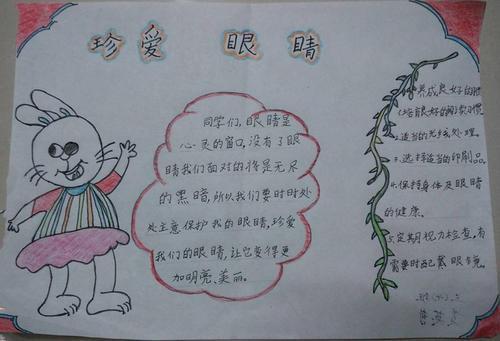 珍爱 眼睛
同学们,眼睛是
心灵的窗口,没有了眼
睛我们面对的将是无尽
的黑暗,所以我们要时时处
处主意保护我的眼睛,珍爱
我们的眼睛,让它变得更
加明亮、美丽。
养成良好的
培养良好的
2.适当的光线处理。
3.选择适当的印刷品
4.保持身体及眼睛
的健康。
5.定期视力检查,有
需要时配戴眼镜。